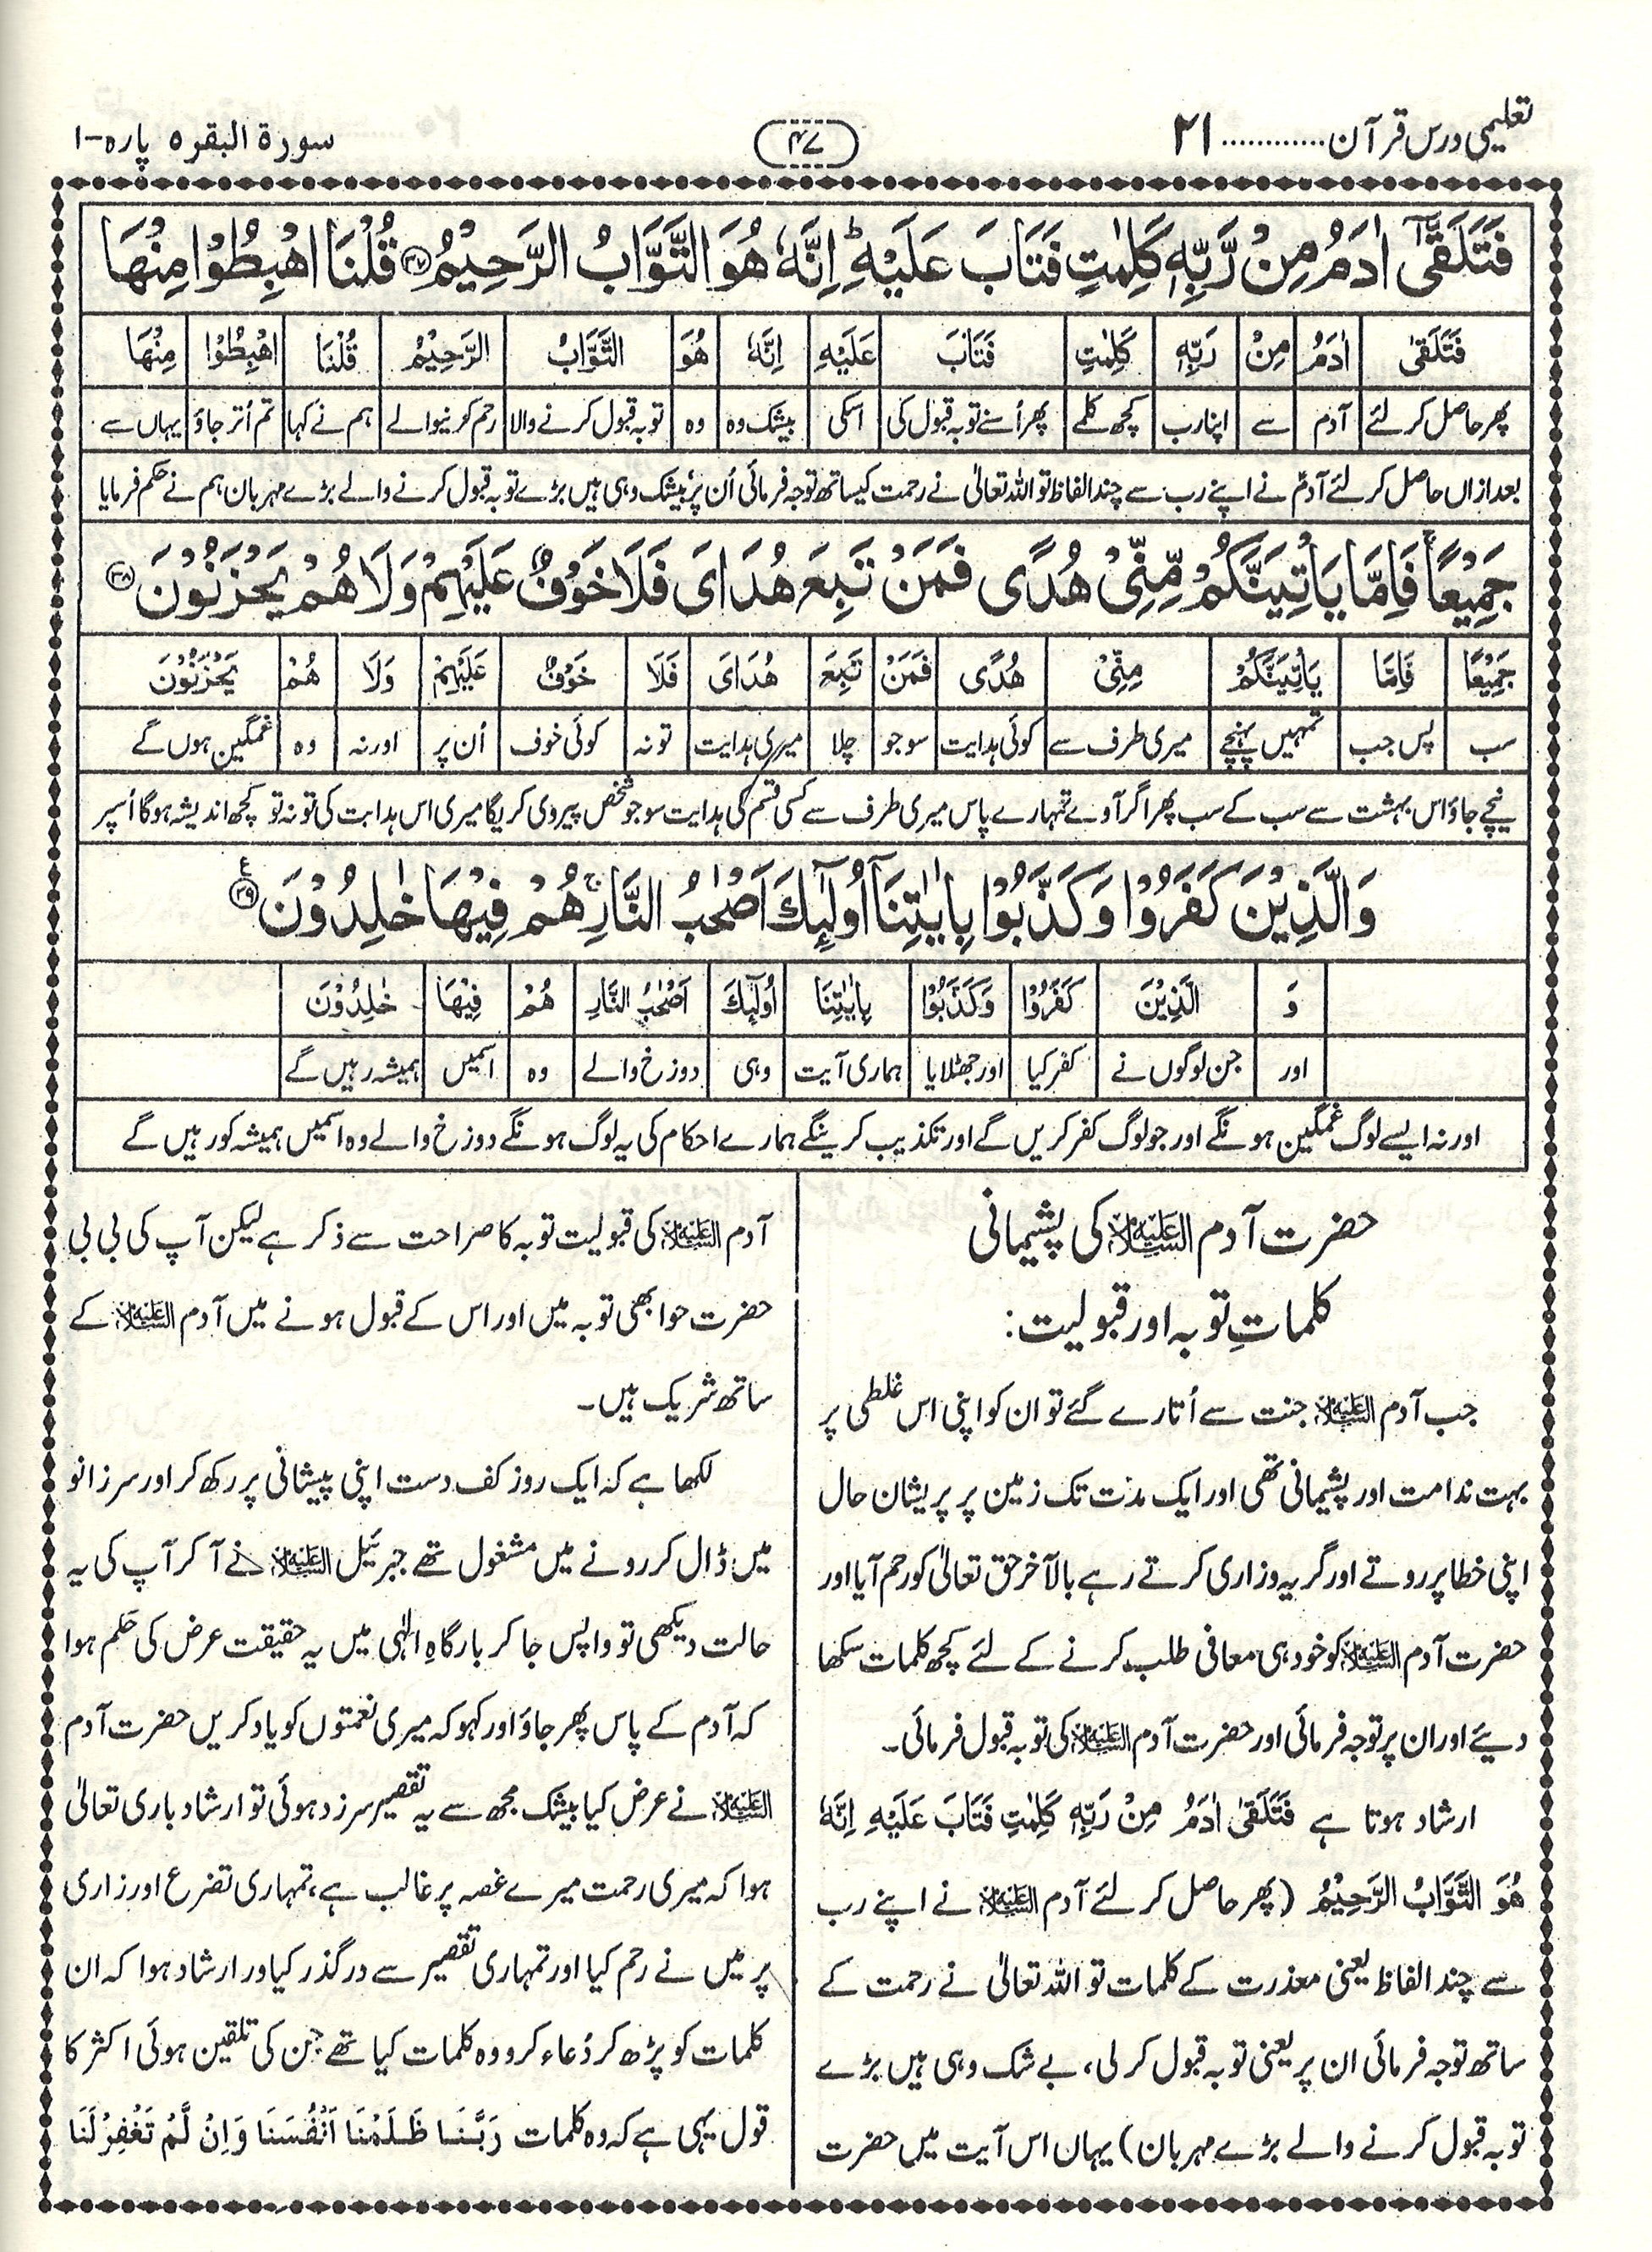 تعلیمی درس قرآن............۲۱
۴۷
سورۃ البقرہ ٥ پارہ-۱
فَتَلَقّٰۤی اٰدَمُ مِنْ رَّبِّہٖ کَلِمٰتٍ فَتَابَ عَلَیْہِ ؕ اِنَّہٗ ہُوَ التَّوَّابُ الرَّحِیْمُ ﴿۳۷﴾ قُلْنَا اہْبِطُوْا مِنْہَا
فَتَلَقّٰی اٰدَمُ مِنْ رَبِّہٖ کَلِمٰتٍ فَتَابَ عَلَیْہِ اِنَّہٗ ہُوَ التَّوَّابُ الرَّحِیْمُ قُلْنَا اہْبِطُوْا مِنْہَا
پھر حاصل کر لئے آدم سے اپنا رب کچھ کلمے پھر اُسنے توبہ قبول کی اسکی بیشک وہ وہ توبہ قبول کرنے والا رحم کرنیوالے ہم نے کہا تم اُتر جاؤ یہاں سے
بعدازاں حاصل کر لئے آدمؑ نے اپنے رب سے چند الفاظ تو اللہ تعالیٰ نے رحمت کیساتھ توجہ فرمائی اُن پر بیشک وہی ہیں بڑے توبہ قبول کرنے والے بڑے مہربان ہم نے حکم فرمایا
جَمِیْعًا ۚ فَاِمَّا یَاْتِیَنَّکُمْ مِّنِّیْ ہُدًی فَمَنْ تَبِعَ ہُدَایَ فَلَا خَوْفٌ عَلَیْہِمْ وَلَا ہُمْ یَحْزَنُوْنَ ﴿۳۸﴾
جَمِیْعًا فَاِمَّا یَاْتِیَنَّکُمْ مِنِّیْ ہُدًی فَمَنْ تَبِعَ ہُدَایَ فَلَا خَوْفٌ عَلَیْہِمْ وَلَا ہُمْ یَحْزَنُوْنَ
سب پس جب تمہیں پہنچے میری طرف سے کوئی ہدایت سو جو چلا میری ہدایت تو نہ کوئی خوف اُن پر اور نہ وہ غمگین ہوں گے
نیچے جاؤ اس بہشت سے سب کے سب پھر اگر آوے تمہارے پاس میری طرف سے کسی قسم کی ہدایت سو جو شخص پیروی کریگا میری اس ہدایت کی تو نہ تو کچھ اندیشہ ہوگا اُسپر
وَالَّذِیْنَ کَفَرُوْا وَکَذَّبُوْا بِاٰیٰتِنَاۤ اُولٰٓئِکَ اَصْحٰبُ النَّارِ ۚ ہُمْ فِیْہَا خٰلِدُوْنَ ﴿۳۹﴾ ع
وَ الَّذِیْنَ کَفَرُوْا وَکَذَّبُوْا بِاٰیٰتِنَا اُولٰٓئِکَ اَصْحٰبُ النَّارِ ہُمْ فِیْہَا خٰلِدُوْنَ
اور جن لوگوں نے کفر کیا اور جھٹلایا ہماری آیت وہی دوزخ والے وہ اسمیں ہمیشہ رہیں گے
اور نہ ایسے لوگ غمگین ہونگے اور جو لوگ کفر کریں گے اور تکذیب کرینگے ہمارے احکام کی یہ لوگ ہونگے دوزخ والے وہ اسمیں ہمیشہ کو رہیں گے
حضرت آدم علیہ السلام کی پشیمانی
کلماتِ توبہ اور قبولیت:
جب آدم علیہ السلام جنت سے اُتارے گئے تو ان کو اپنی اس غلطی پر
بہت ندامت اور پشیمانی تھی اور ایک مدّت تک زمین پر پریشان حال
اپنی خطا پر روتے اور گریہ وزاری کرتے رہے بالآخر حق تعالیٰ کو رحم آیا اور
حضرت آدم علیہ السلام کو خود ہی معافی طلب کرنے کے لئے کچھ کلمات سکھا
دیئے اور ان پر توجہ فرمائی اور حضرت آدم علیہ السلام کی توبہ قبول فرمائی۔
ارشاد ہوتا ہے فَتَلَقّٰی اٰدَمُ مِنْ رَبِّہٖ کَلِمٰتٍ فَتَابَ عَلَیْہِ اِنَّہٗ
ہُوَ التَّوَّابُ الرَّحِیْمُ (پھر حاصل کر لئے آدم علیہ السلام نے اپنے رب
سے چند الفاظ یعنی معذرت کے کلمات تو اللہ تعالیٰ نے رحمت کے
ساتھ توجہ فرمائی ان پر یعنی توبہ قبول کر لی، بے شک وہی ہیں بڑے
توبہ قبول کرنے والے بڑے مہربان) یہاں اس آیت میں حضرت
آدم علیہ السلام کی قبولیت توبہ کا صراحت سے ذکر ہے لیکن آپ کی بی بی
حضرت حوا بھی توبہ میں اور اس کے قبول ہونے میں آدم علیہ السلام کے
ساتھ شریک ہیں۔
لکھا ہے کہ ایک روز کف دست اپنی پیشانی پر رکھ کر اور سر زانو
میں ڈال کر رونے میں مشغول تھے جبرئیل علیہ السلام نے آکر آپ کی یہ
حالت دیکھی تو واپس جا کر بارگاہِ الٰہی میں یہ حقیقت عرض کی حکم ہوا
کہ آدم کے پاس پھر جاؤ اور کہو کہ میری نعمتوں کو یاد کریں حضرت آدم
علیہ السلام نے عرض کیا بیشک مجھ سے یہ تقصیر سرزد ہوئی تو ارشاد باری تعالیٰ
ہوا کہ میری رحمت میرے غصہ پر غالب ہے، تمہاری تضرع اور زاری
پر میں نے رحم کیا اور تمہاری تقصیر سے درگذر کیا ور ارشاد ہوا کہ ان
کلمات کو پڑھ کر دُعاء کرو وہ کلمات کیا تھے جن کی تلقین ہوئی اکثر کا
قول یہی ہے کہ وہ کلمات رَبَّنَا ظَلَمْنَا اَنْفُسَنَا وَاِنْ لَّمْ تَغْفِرْلَنَا